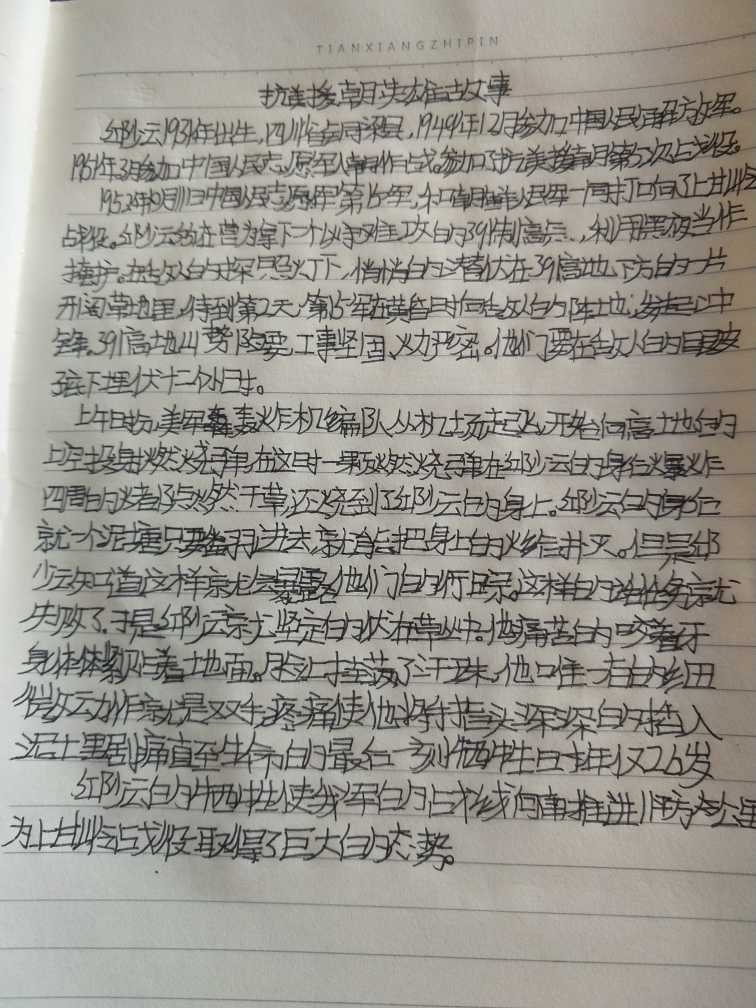 TIANXIANGZHIPIN
抗美援朝英雄故事
邱少云1931年出生,四川省铜梁县,1949年12月参加中国人民解放军。
1951年3月参加中国人民志愿军入朝作战。参加了抗美援朝第五次战役。
1952年10月11日中国人民志愿军第15军,和朝鲜人民军一同打响了上甘岭
战役。邱少云所在营为拿下一个以守难攻的391制高点,利用黑夜当作
掩护。在敌人的探照灯下,悄悄的潜伏在391高地下方的一片
开阔草地里,待到第2天,第15军在黄昏时向敌人的阵地发起冲
锋。391高地山势险要,工事坚固,火力严密。他们要在敌人的眼皮
底下埋伏十二个小时。
上午时分,美军轰炸机编队从机场起飞,开始向高地的
上空投射燃烧弹,在这时一颗燃烧弹在邱少云的身后爆炸
四周的火苗点燃干草,还烧到了邱少云的身上。邱少云的身后
就一个泥塘只要翻进去,就能把身上的火给扑灭。但是邱
少云知道这样就会暴露他们的行踪。这样的话任务就
失败了。于是邱少云就坚定的伏在草丛中。他痛苦的咬着牙
身体紧贴着地面。脸上挂满了汗珠,他唯一有的细
微动作就是双手,疼痛使他将手指头深深的插入
泥土里剧痛直至生命的最后一刻牺牲时年仅26岁
邱少云的牺牲使我军的战线向南推进1平方公里
为上甘岭战役取得了巨大的态势。